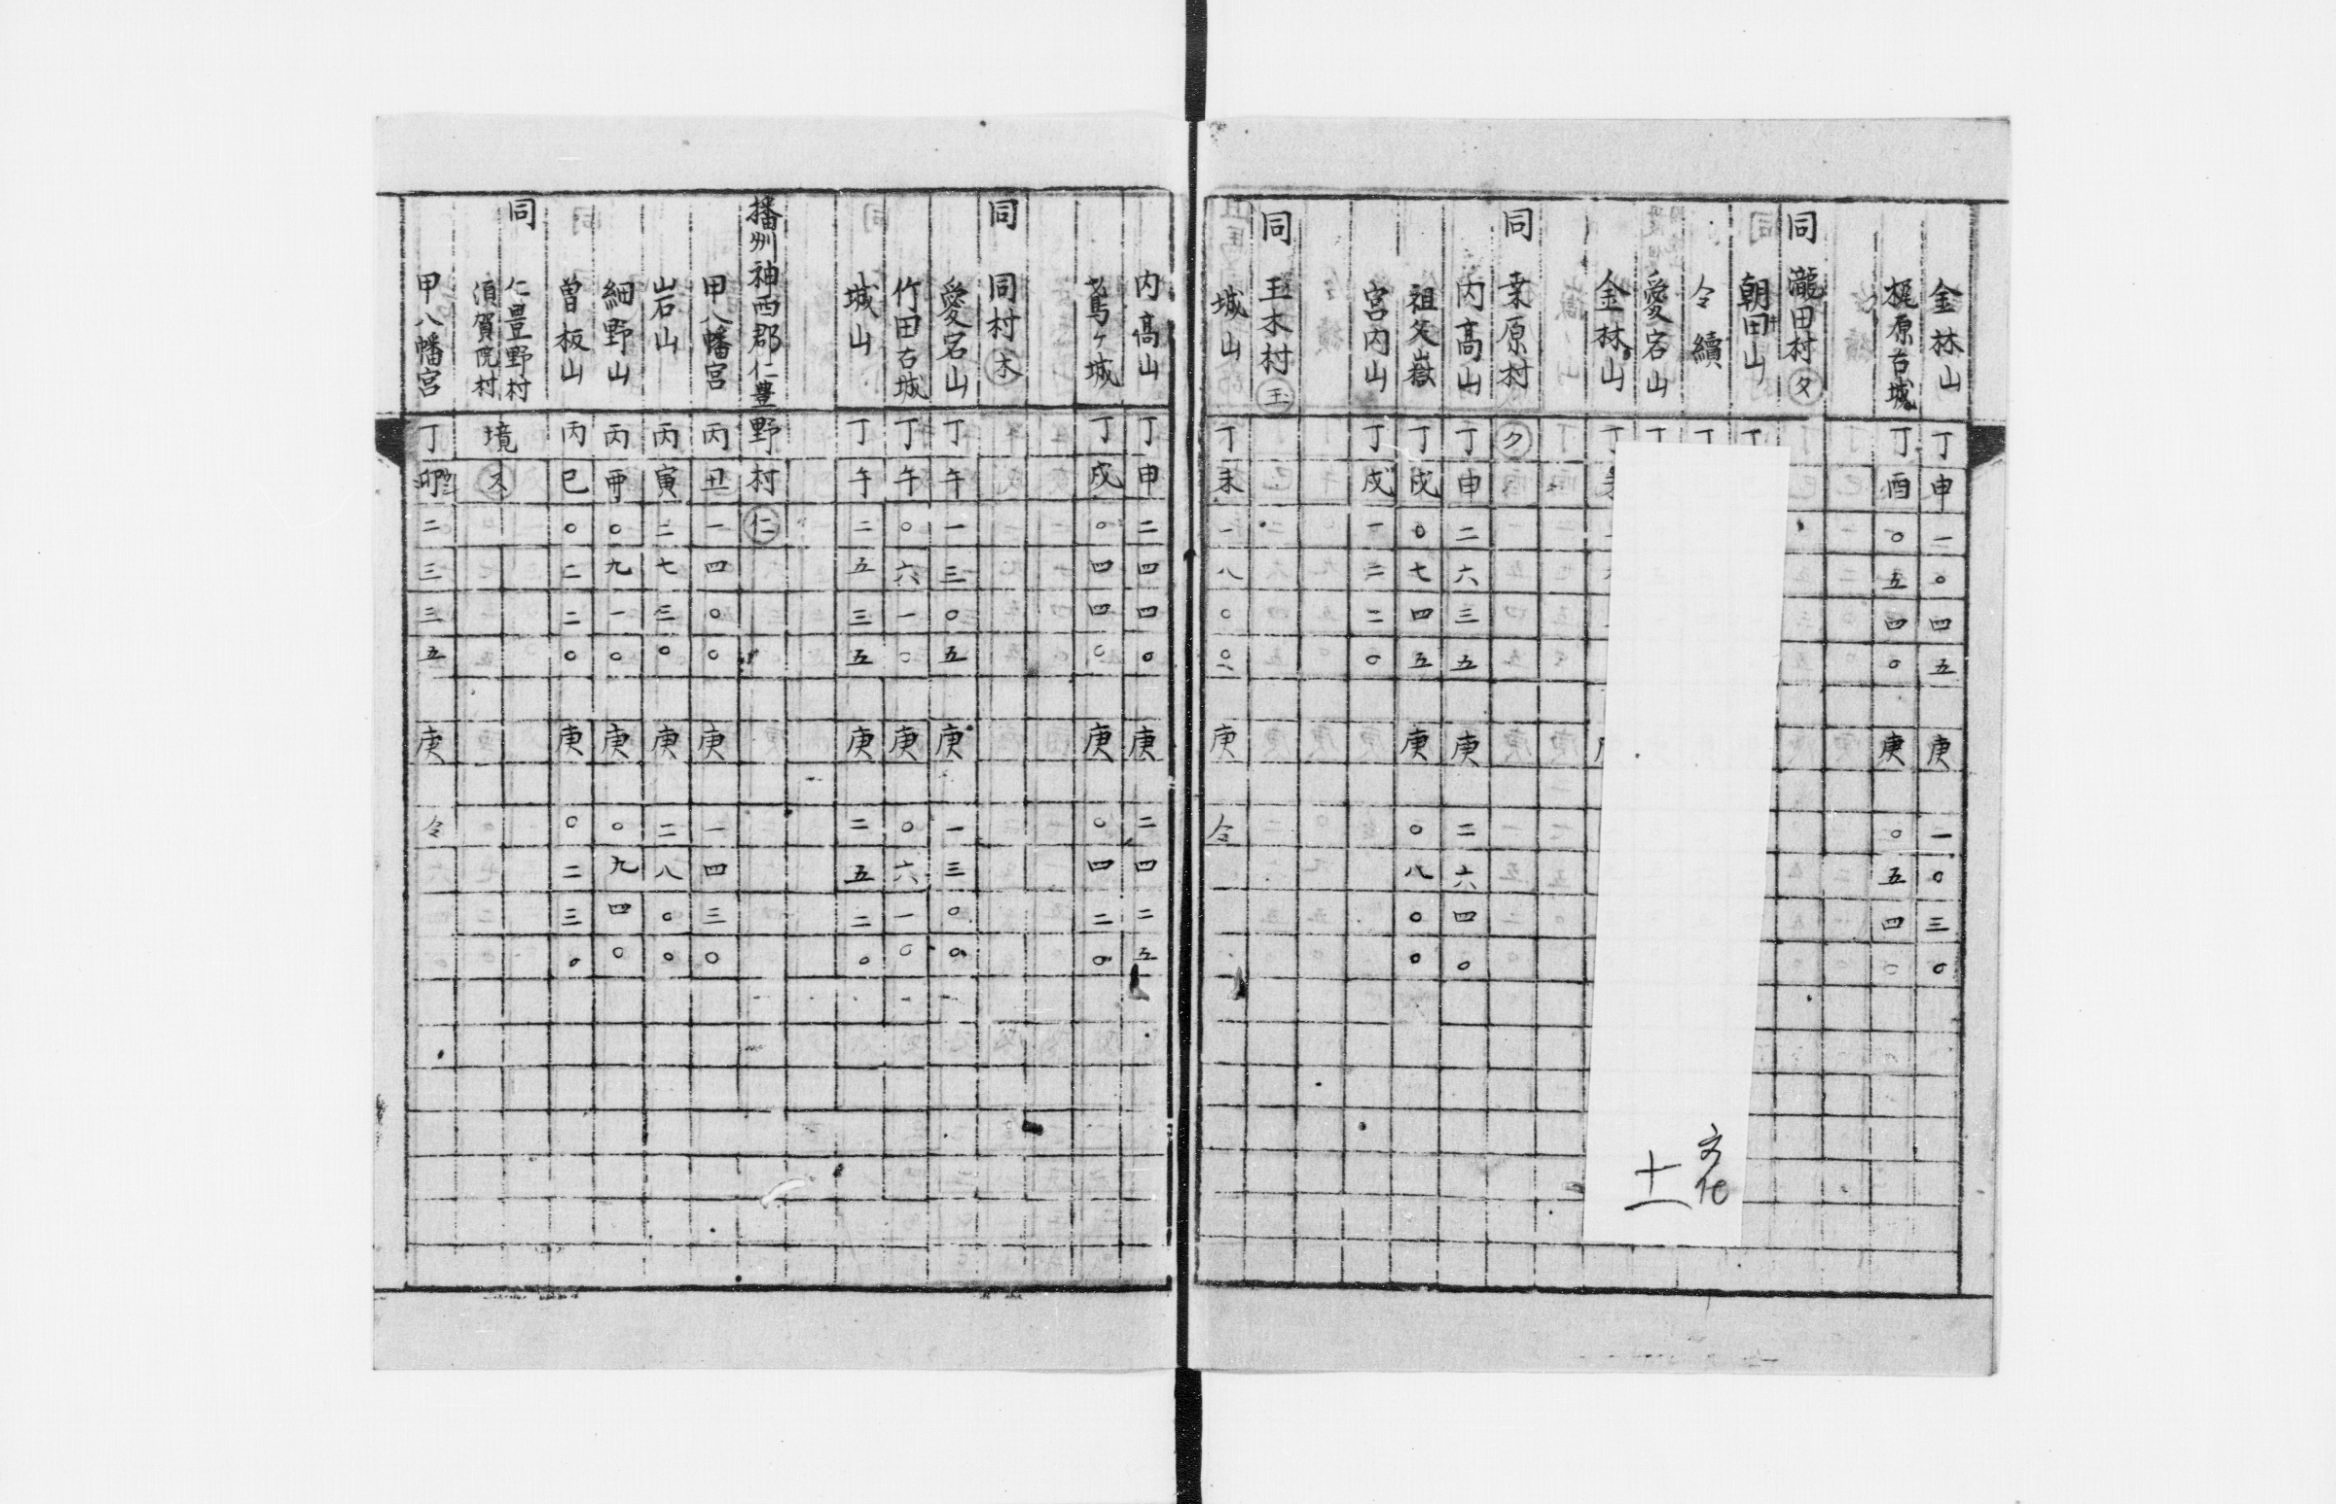 金林山 丁申 一〇四五 庚 一〇三〇
梶原古城 丁酉 〇五四〇 庚 〇五四〇
同 瀧田村 タ
朝田山 丁
仝續 丁
愛宕山 丁
金林山 丁未
同 桒原村 ク
内高山 丁申 二六三五 庚 二六四〇
祖父嶽 丁戌 〇七四五 庚 〇八〇〇
宮内山 丁戌 一二二〇
同 玉木村 王
城山 丁未 一八〇〇 庚 仝
文化
十一
内高山 丁申 二四四〇 庚 二四二五
丁戌 〇四四〇 庚 〇四二〇
同 同村 木
愛宕山 丁午 一三〇五 庚 一三〇〇
竹田古城 丁午 〇六一〇 庚 〇六一〇
城山 丁午 二五三五 庚 二五二〇
播州神西郡仁豊野村 仁
甲八幡宮 丙丑 一四〇〇 庚 一四三〇
岩山 丙寅 二七三〇 庚 二八〇〇
細野山 丙 〇九一〇 庚 〇九四〇
曽板山 丙巳 〇二二〇 庚 〇二三〇
同 仁豊野村
須賀院村 境
甲八幡宮 丁卯 二三三五 庚 仝